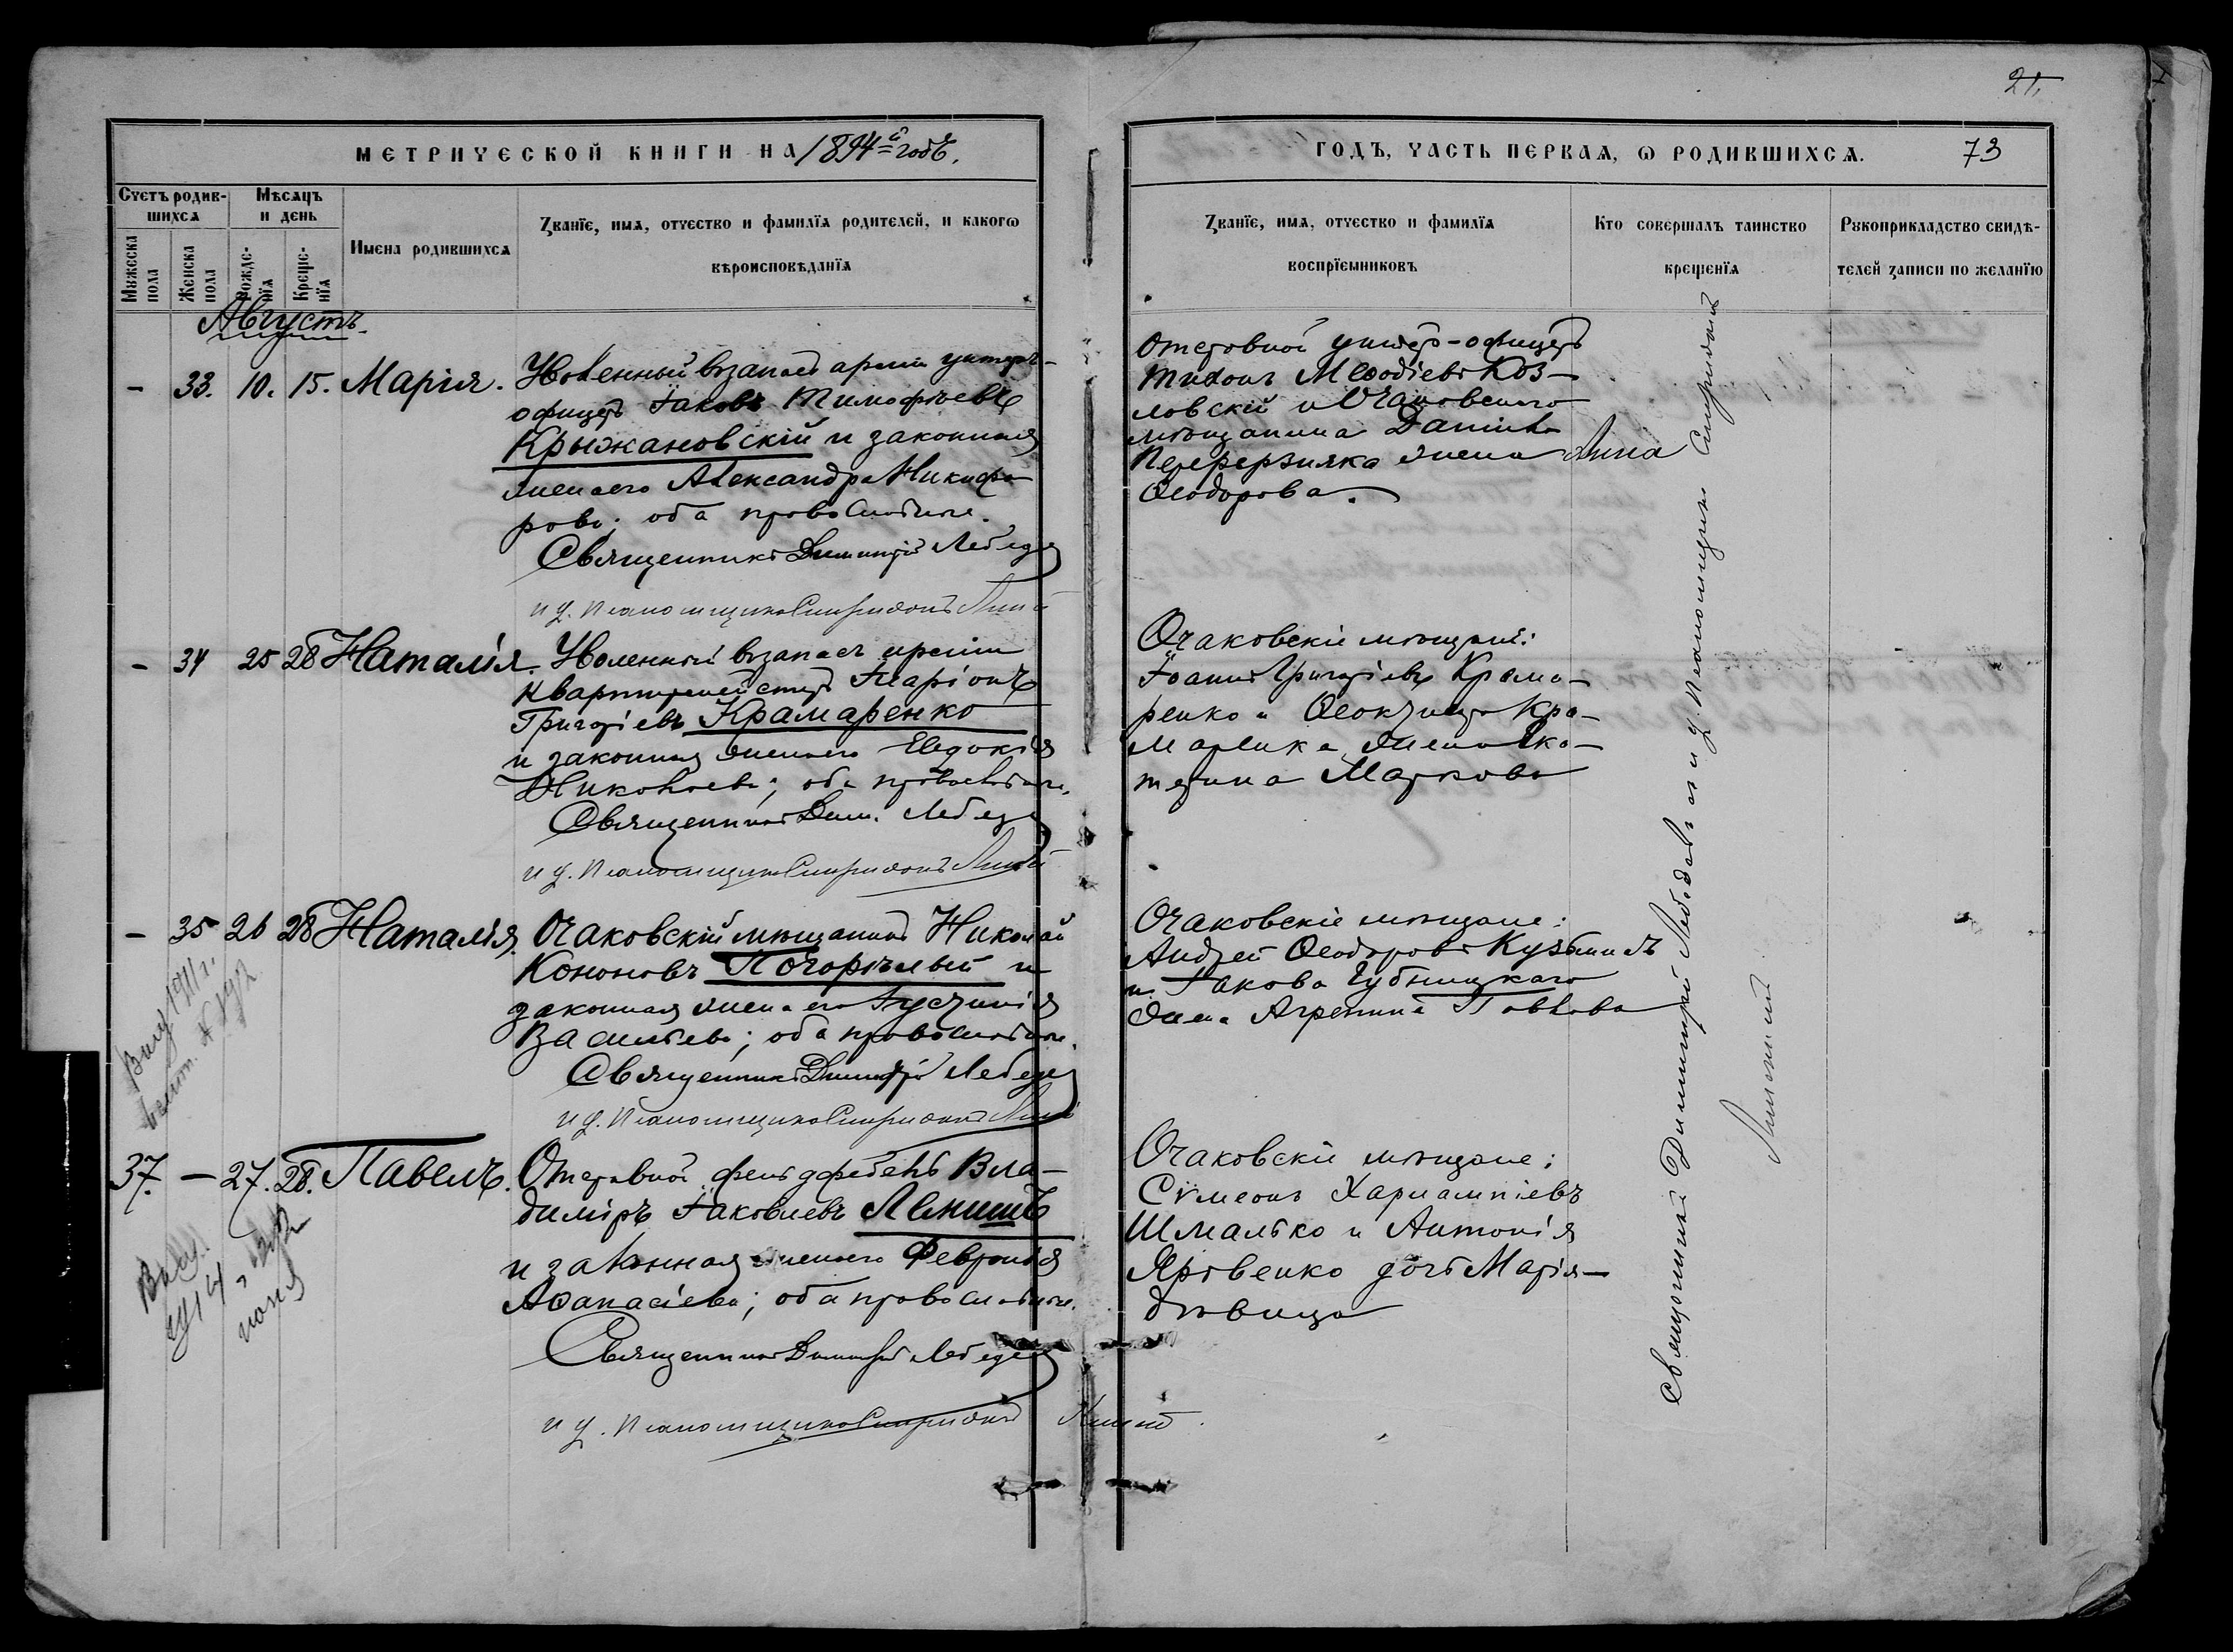 21.
МЕТРИЧЕСКОЙ КНИГИ НА 1894й годъ.
ГОДЪ, ЧАСТЬ ПЕРВАЯ, Ѡ РОДИВШИХСЯ. 73
Счетъ родив-
шихся
Мѣсяцъ
и день
Мужеска
пола
Женска
пола
Рожде-
нїя
Креще-
нїя
Имена родившихся
Званїе, имя, отчество и фамилїя родителей, и какогѡ
вѣроисповѣданїя
Званїе, имя, отчество и фамилїя
воспрїемниковъ
Кто совершалъ таинство
крещенїя
Рукоприкладство свидѣ-
телей записи по желанїю
Августъ.
- 33. 10. 15. Марія. Уволенный въ запасъ арміи унтеръ-
офицеръ Іаковъ Тимофѣевъ
Крыжановскій и законная
жена его Александра Никифо
рова; оба православные.
Священникъ Димитрій Лебедевъ
и д. псаломщика Спиридонъ
Отставной унтеръ-офицеръ
Тихонъ Меѳодіевъ Коз-
ловскій и Очаковскаго
мѣщанина Даниила
жена Анна
Ѳеодорова.
- 34 25 28 Наталія. Уволенный въ запасъ арміи
квартирмейстеръ Иларіонъ
Григоріевъ Крамаренко
и законная жена его Евдокія
Николаева; оба православные.
Священникъ Дим. Лебедевъ
и д. псаломщика Спиридонъ
Очаковскіе мѣщане:
Іоаннъ Григоріевъ Крама-
ренко и Кра-
маренка жена Ека-
терина Маркова
- 35 26 28 Наталія. Очаковскій мѣщанинъ Николай
Кононовъ Погорѣлый и
законная жена его Іустинія
Васильева; оба православные.
Священникъ Димитрій Лебедевъ
и д. псаломщика Спиридонъ
Очаковскіе мѣщане:
Андрей Ѳеодоровъ Кузьминъ
и Іакова Губницкаго
жена Агрепина Павлова
1911 г.
37. - 27. 28. Павелъ. Отставной фельдфебель Вла-
диміръ Іаковлевъ
и законная жена его Февронія
Аѳанасіева; оба православные.
Священникъ Димитрій Лебедевъ
и д. псаломщика Спиридонъ
Очаковскіе мѣщане:
Сѵмеонъ Харлампіевъ
Шмалько и Антонія
Яровенко дочь Марія-
дѣвица
1914
Священникъ Димитрій Лебедевъ и и д. псаломщика Спиридонъ